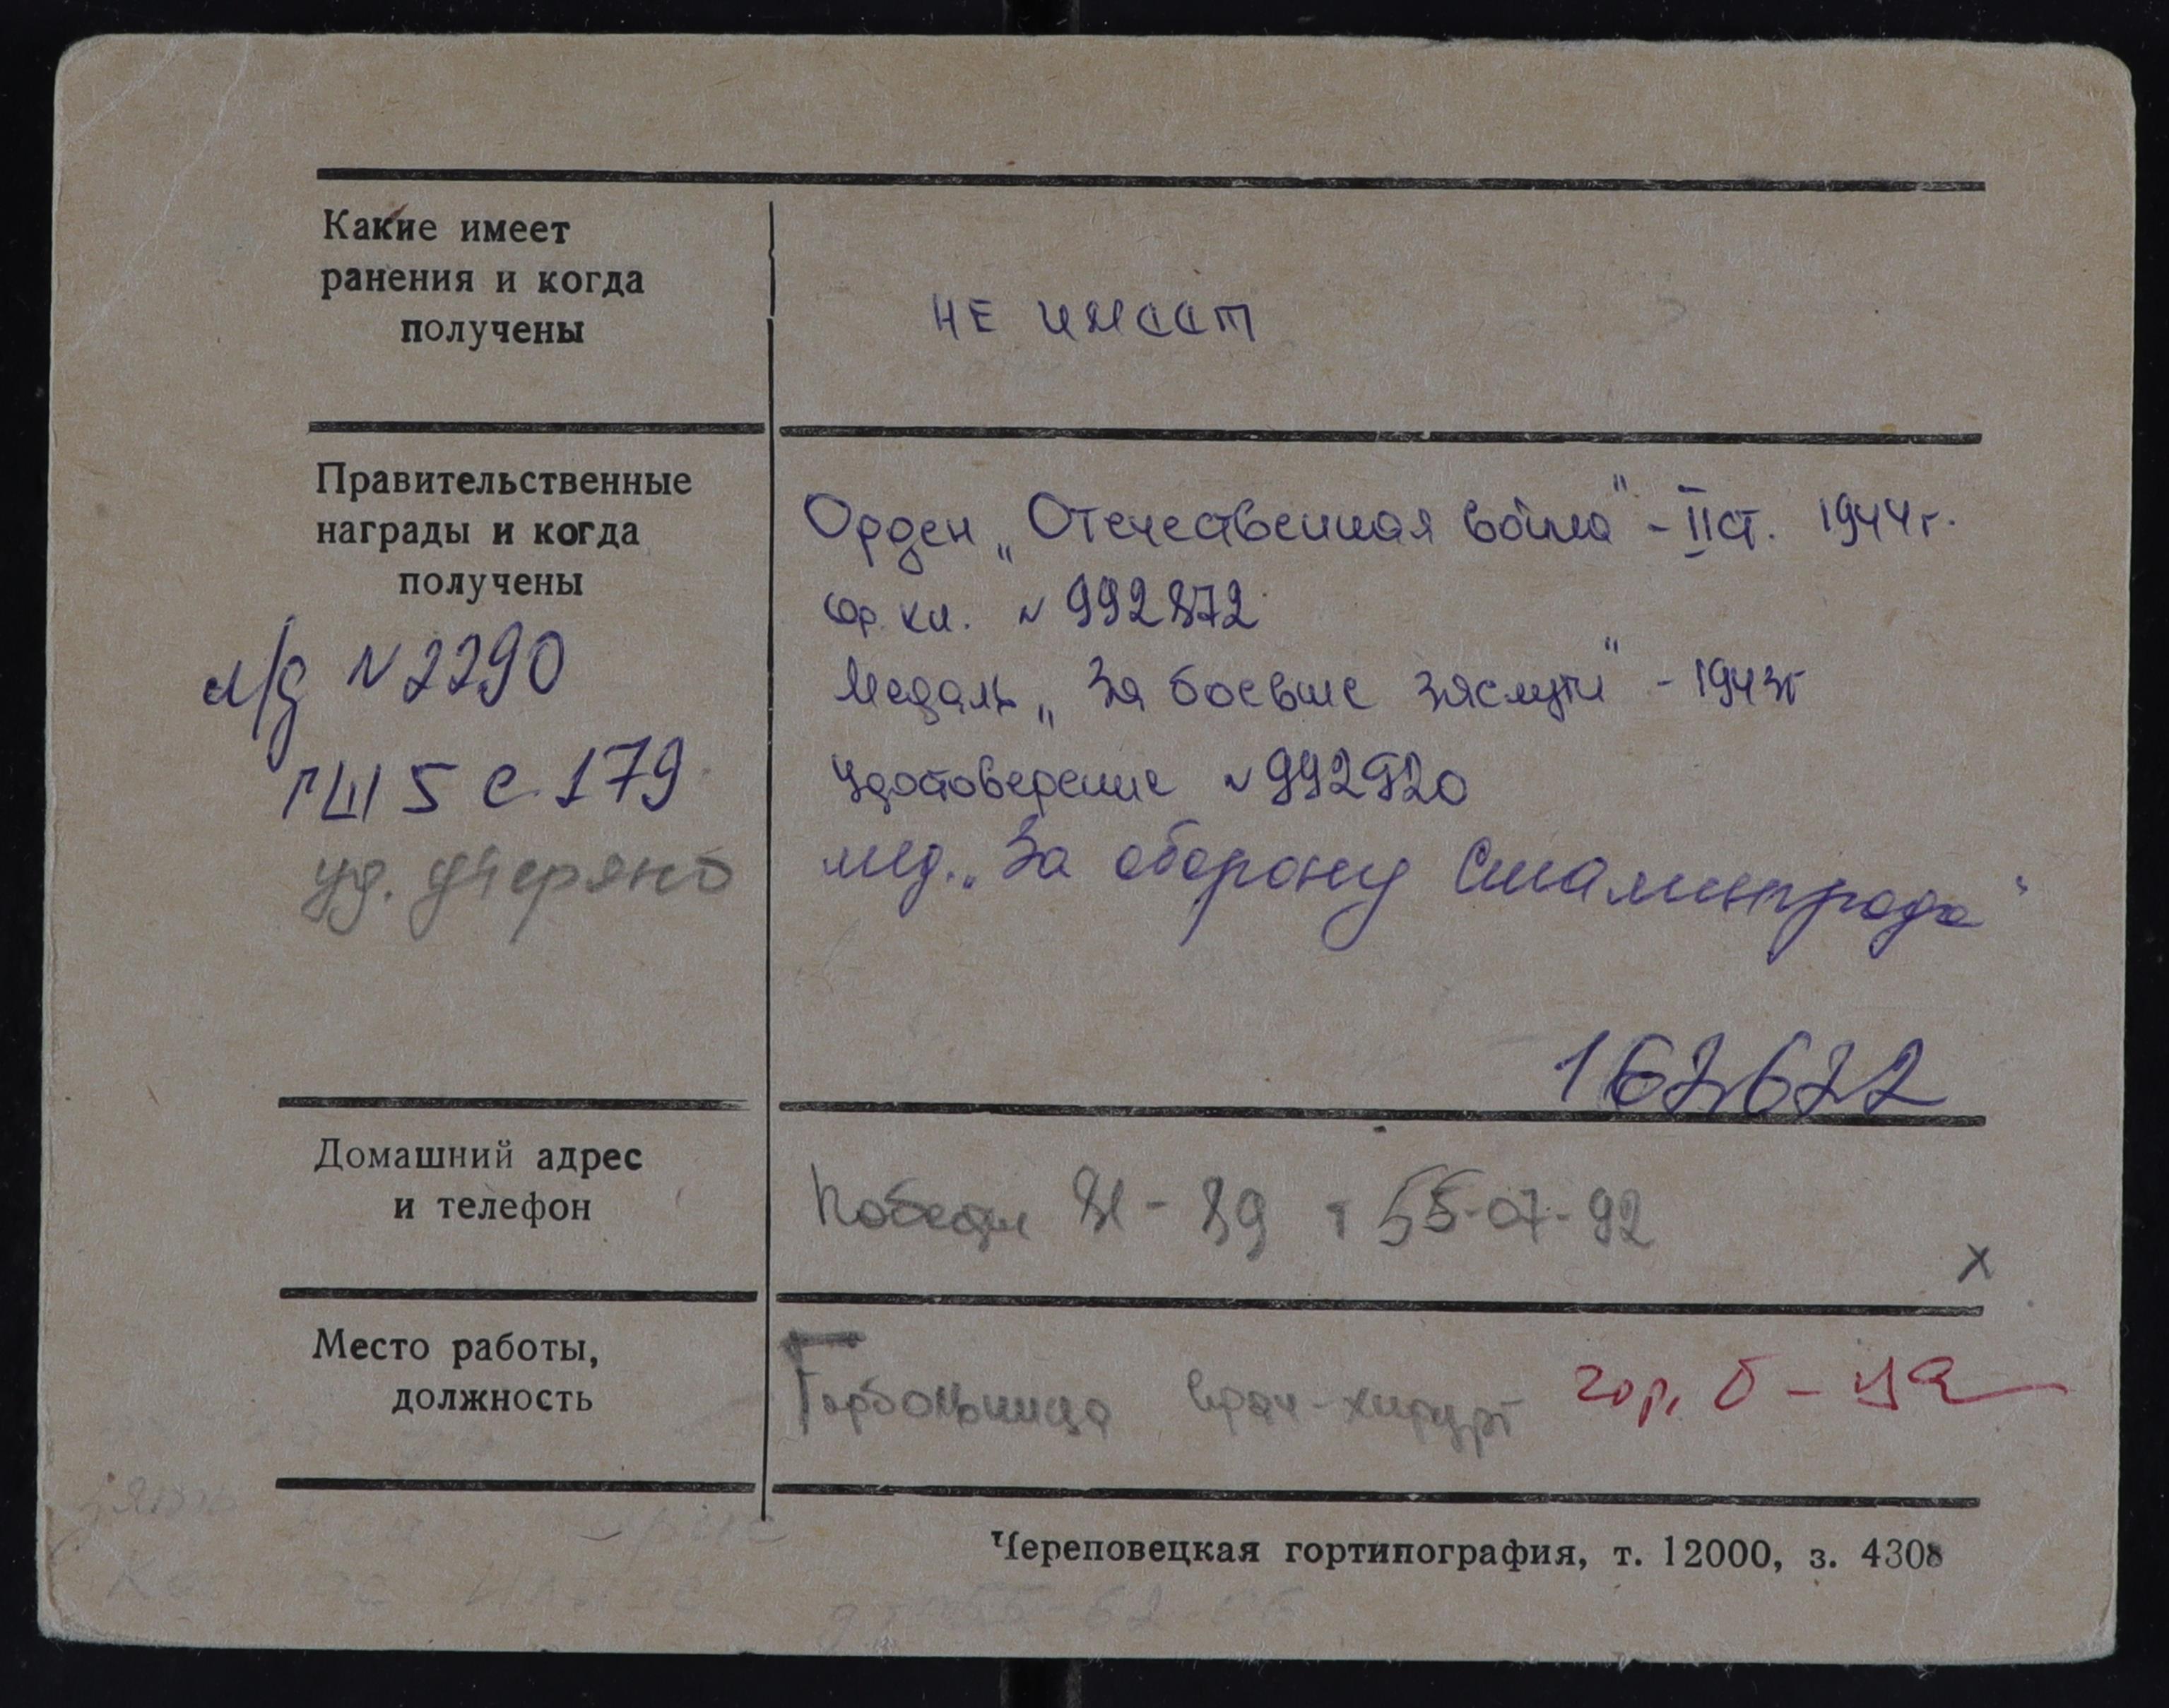 Какие имеет
ранения и когда
получены
НЕ имеет
Правительственные
награды и когда
получены
Орден „Отечественная война" - II ст. 1944 г.
ор. кн. № 992872
Медаль „За боевые заслуги" - 1943г
Удостоверение № 992920
мед. „За оборону Сталинграда"
л/д № 2290
ГШ 5 с. 179
уд. утеряно
162622
Домашний адрес
и телефон
Победы 81 - 89 т 55-07-92
х
Место работы,
должность
Горбольница врач-хирург гор. б-ца
Череповецкая гортипография, т. 12000, з. 4308